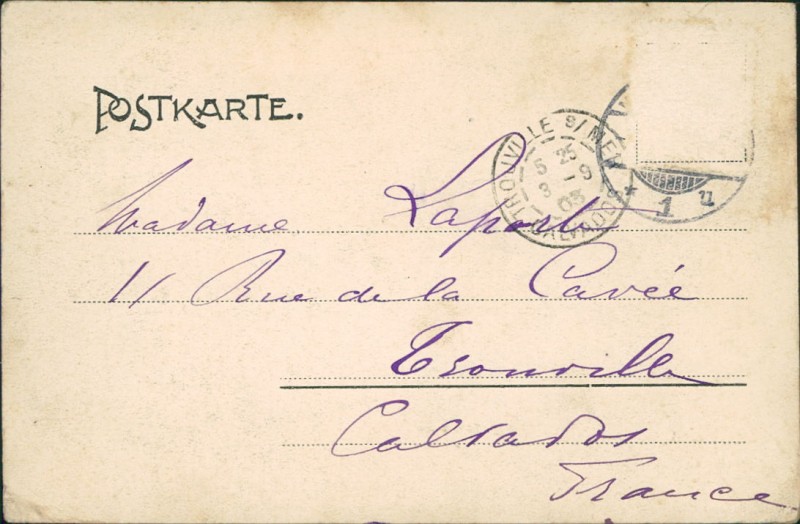 POSTKARTE.
TROUVILLE S/MER
5 25
3 - 9
03
CALVADOS
* 1 u
Madame Laporte
11 Rue de la Cavée
Trouville
Calvados
France